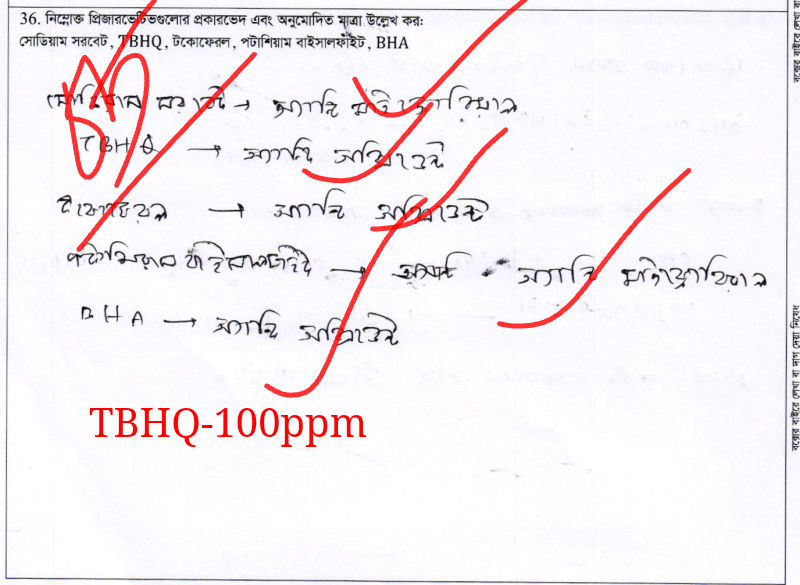 36. নিম্নোক্ত প্রিজারভেটিভগুলোর প্রকারভেদ এবং অনুমোদিত মাত্রা উল্লেখ কর:
সোডিয়াম সরবেট, TBHQ, টকোফেরল, পটাশিয়াম বাইসালফাইট, BHA
সোডিয়াম সরবেট → অ্যান্টি মাইক্রোবিয়াল
TBHQ → অ্যান্টি অক্সিডেন্ট
টকোফেরল → অ্যান্টি অক্সিডেন্ট
পটাসিয়াম বাইসালফাইট → অ্যান্টি মাইক্রোবিয়াল
BHA → অ্যান্টি অক্সিডেন্ট
TBHQ-100ppm
বক্সের বাইরে লেখা বা দাগ দেয়া নিষেধ